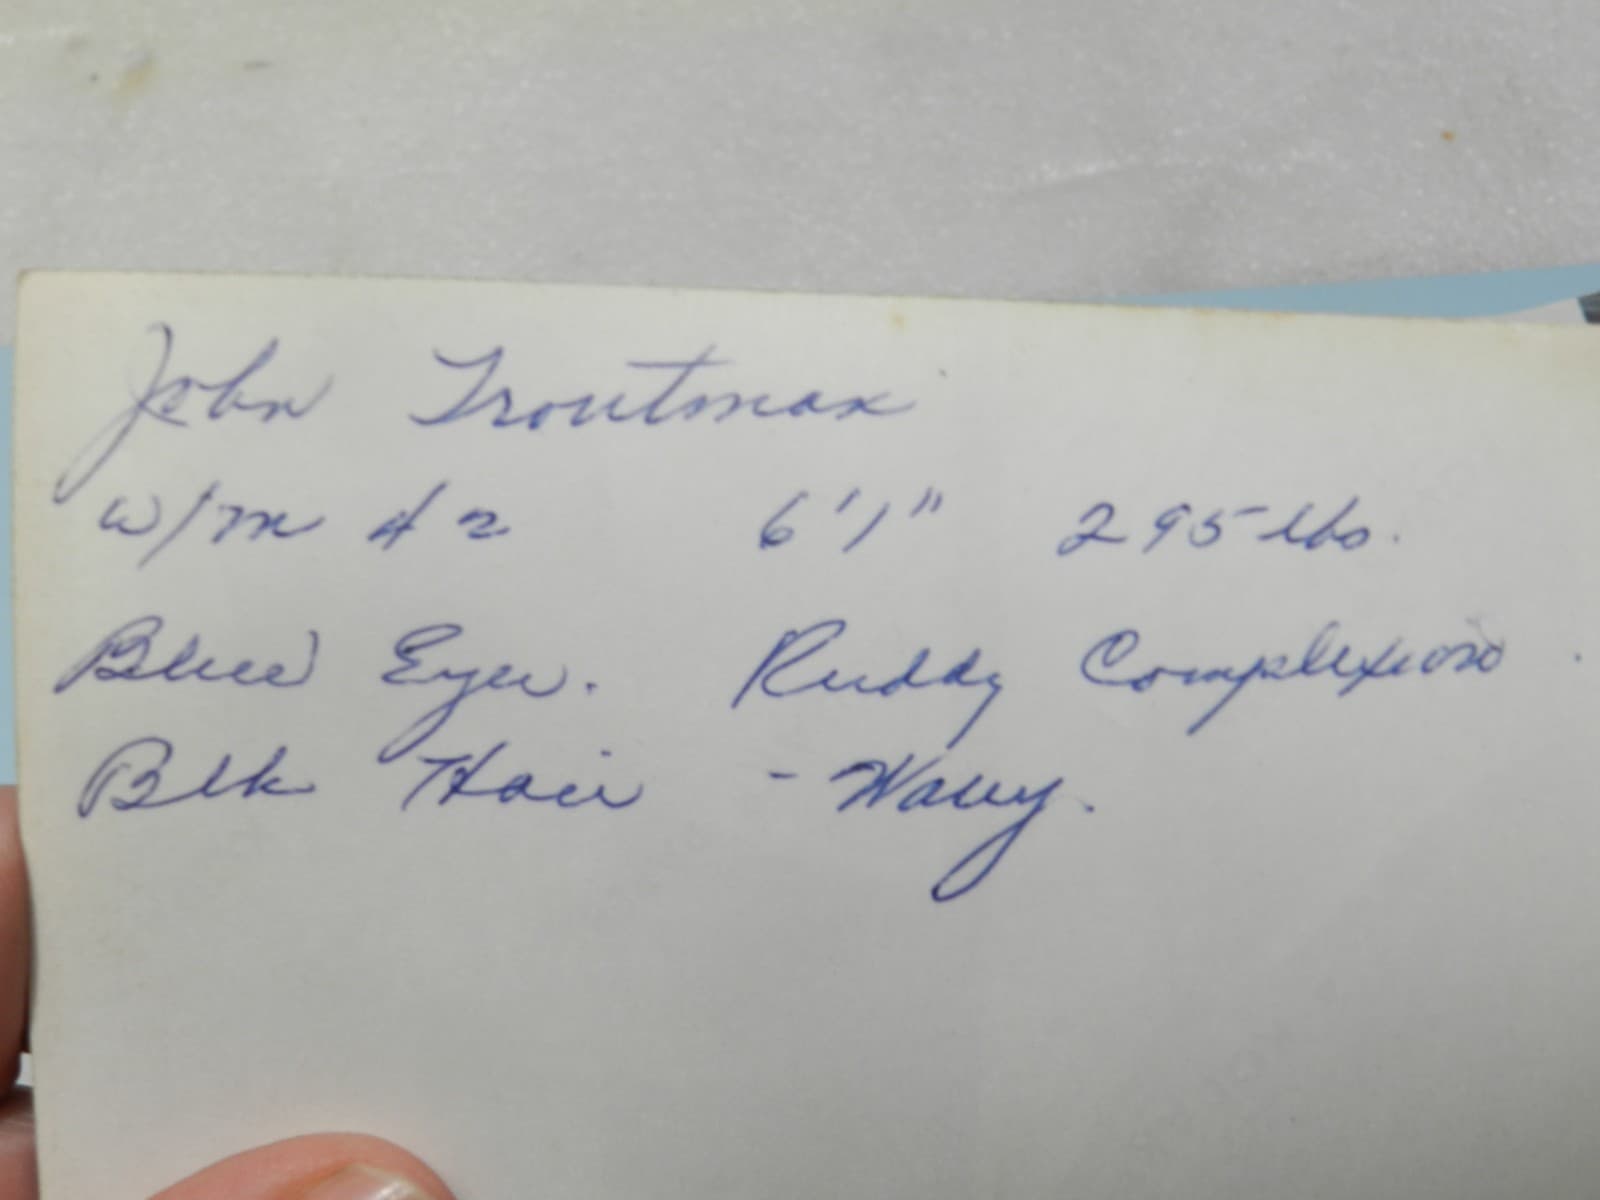 John Troutman
W/M 42 6'1" 295 lbs.
Blue Eyes. Ruddy Complexion.
Blk Hair - Wavy.